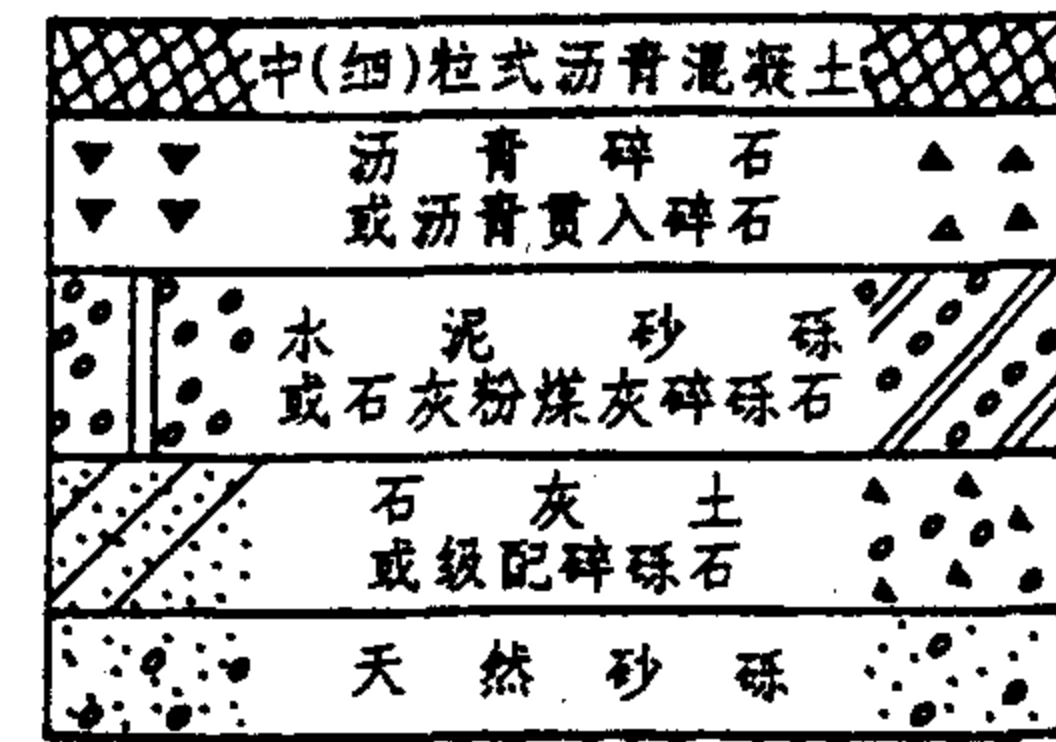 中(细)粒式沥青混凝土
沥青碎石
或沥青贯入碎石
水泥砂砾
或石灰粉煤灰碎砾石
石灰土
或级配碎砾石
天然砂砾